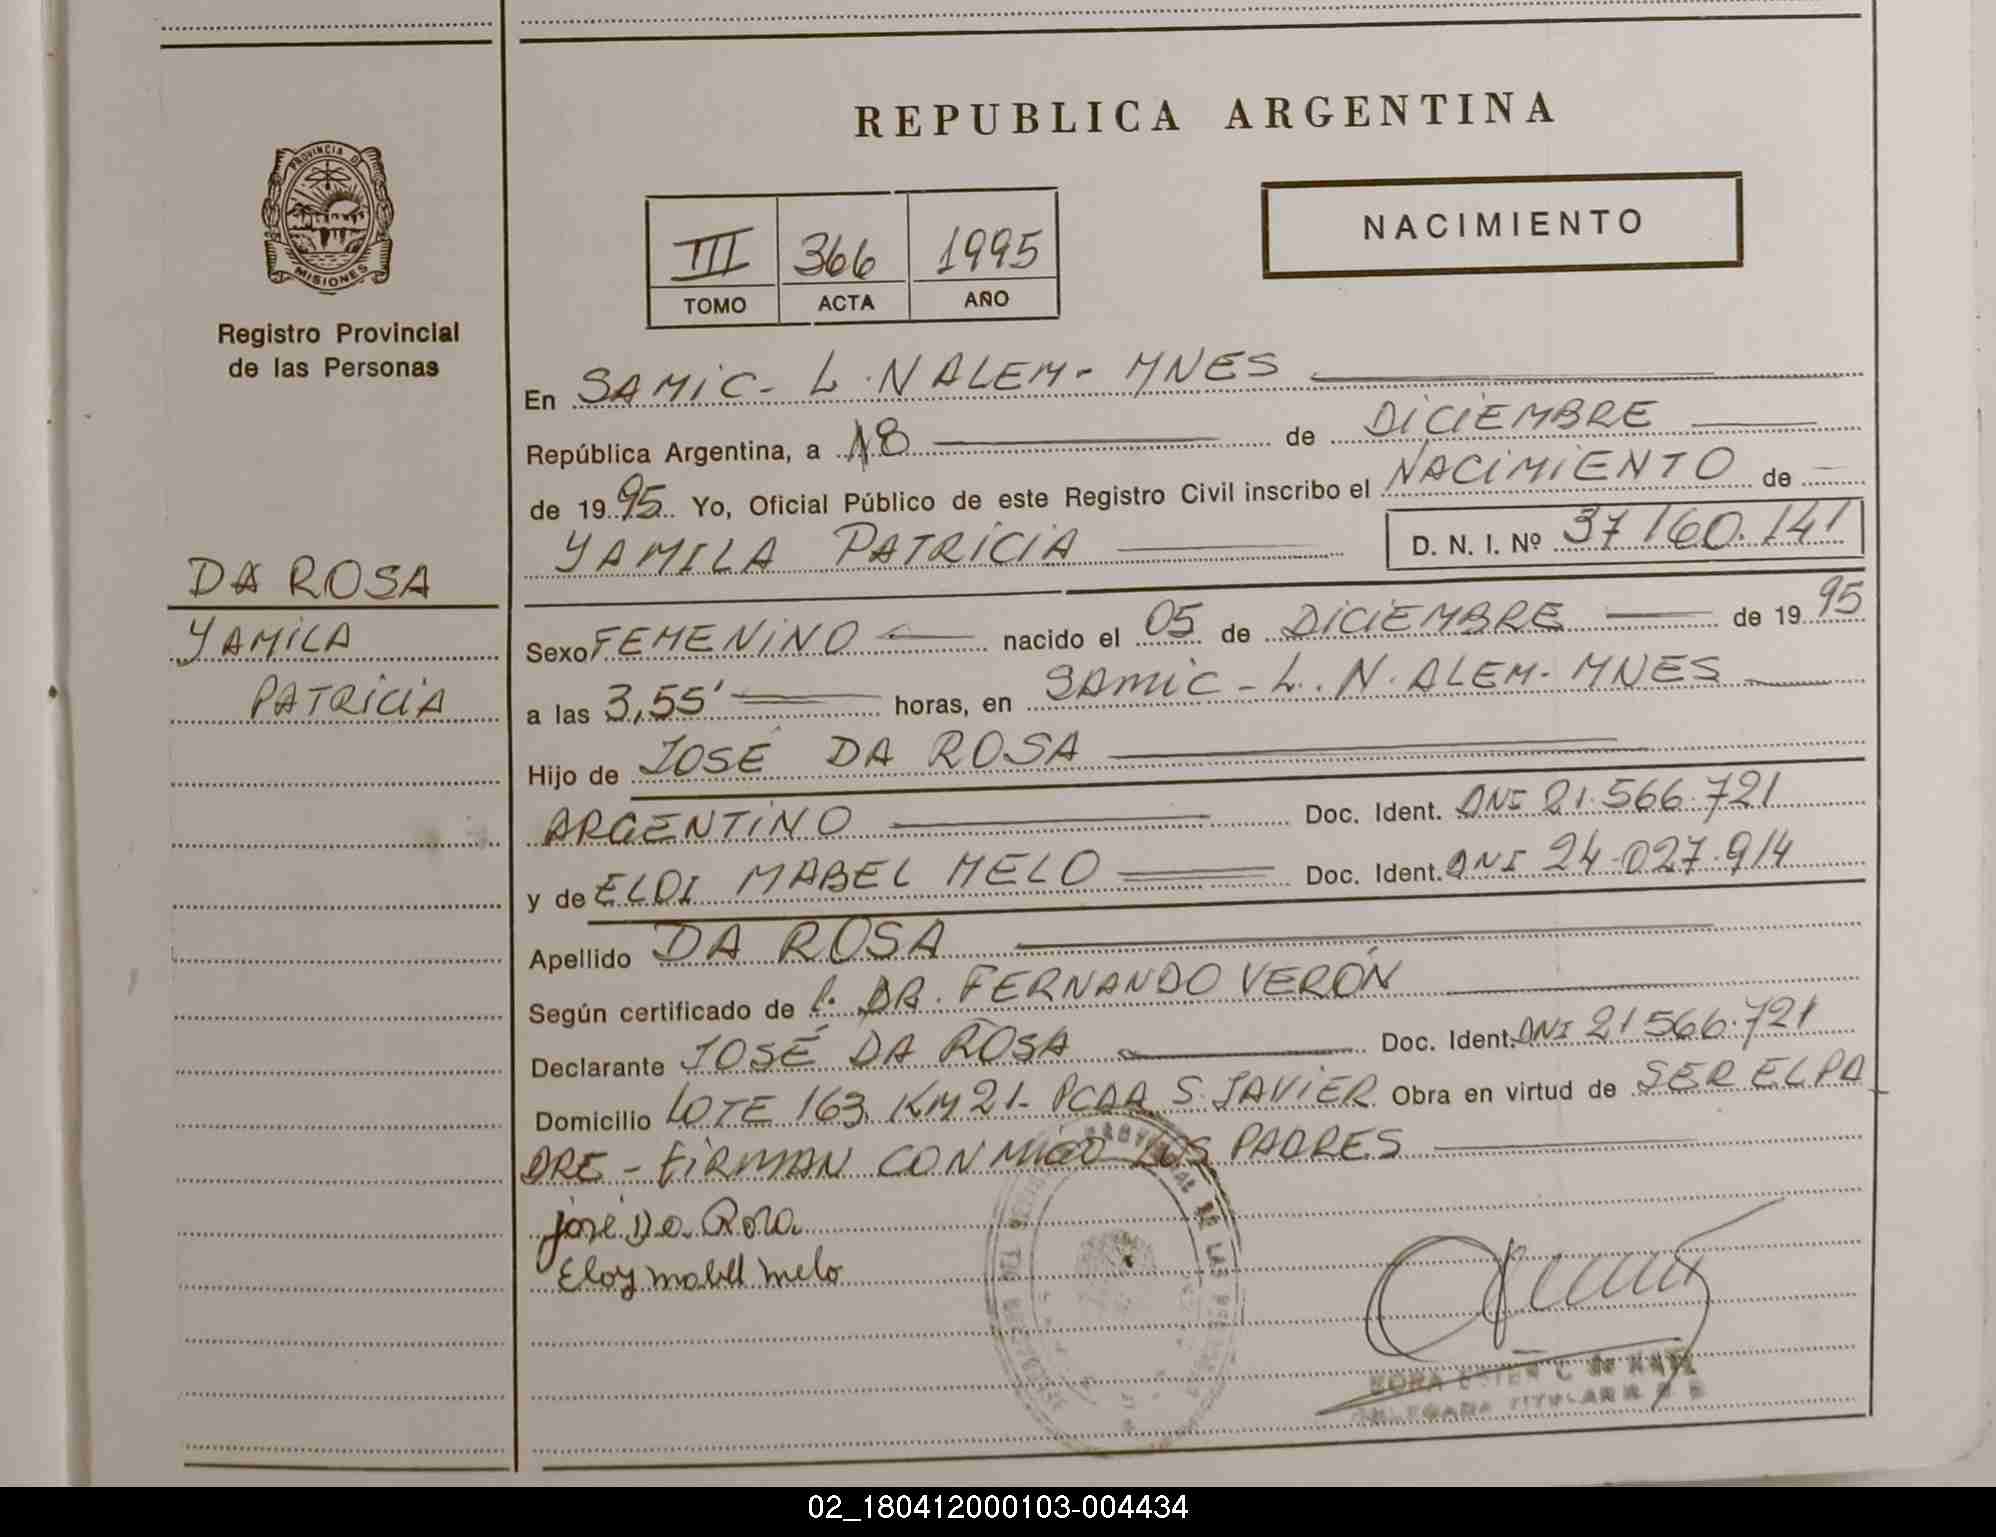 REPUBLICA ARGENTINA
PROVINCIA DE
MISIONES
Registro Provincial
de las Personas
III 366 1995
TOMO ACTA AÑO
NACIMIENTO
En SAMIC - L. N ALEM - MNES
República Argentina, a 18 de DICIEMBRE
de 1995 Yo, Oficial Público de este Registro Civil inscribo el NACIMIENTO de
YAMILA PATRICIA D. N. I. Nº 37160.141
DA ROSA
YAMILA
PATRICIA
Sexo FEMENINO nacido el 05 de DICIEMBRE de 1995
a las 3,55' horas, en SAMIC - L. N. ALEM - MNES
Hijo de JOSÉ DA ROSA
ARGENTINO Doc. Ident. DNI 21.566.721
y de ELOI MABEL MELO Doc. Ident. DNI 24.027.914
Apellido DA ROSA
Según certificado de DR. FERNANDO VERÓN
Declarante JOSÉ DA ROSA Doc. Ident. DNI 21566.721
Domicilio LOTE 163 KM 21 - PCDA S. JAVIER Obra en virtud de SER EL PA
DRE - FIRMAN CONMIGO LOS PADRES
josé Da Rosa
Eloy mabel melo
DELEGADA TITULAR
02_180412000103-004434